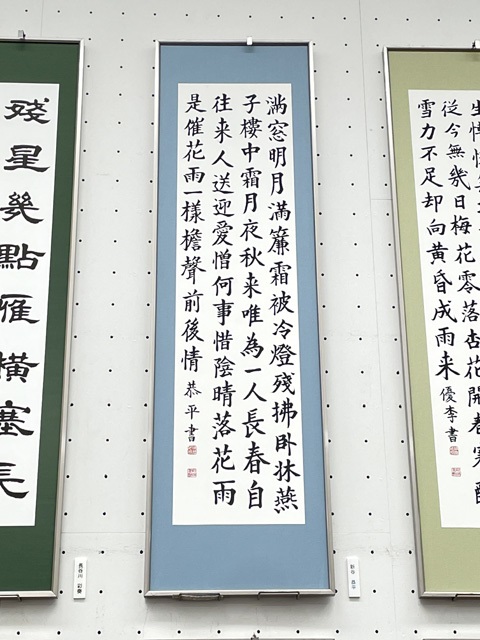 従今無幾日梅花零落杏花開春寒
雪力不足却向黄昏成雨来 優李書
滿窓明月滿簾霜被冷燈殘拂臥牀燕
子樓中霜月夜秋来唯為一人長春自
往来人送迎愛憎何事惜陰晴落花雨
是催花雨一樣檐聲前後情 恭平書
殘星幾點雁横塞長